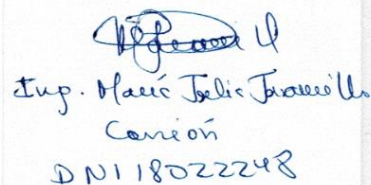 Ing. María Julia Jaramillo
Carrión
DNI 18022248